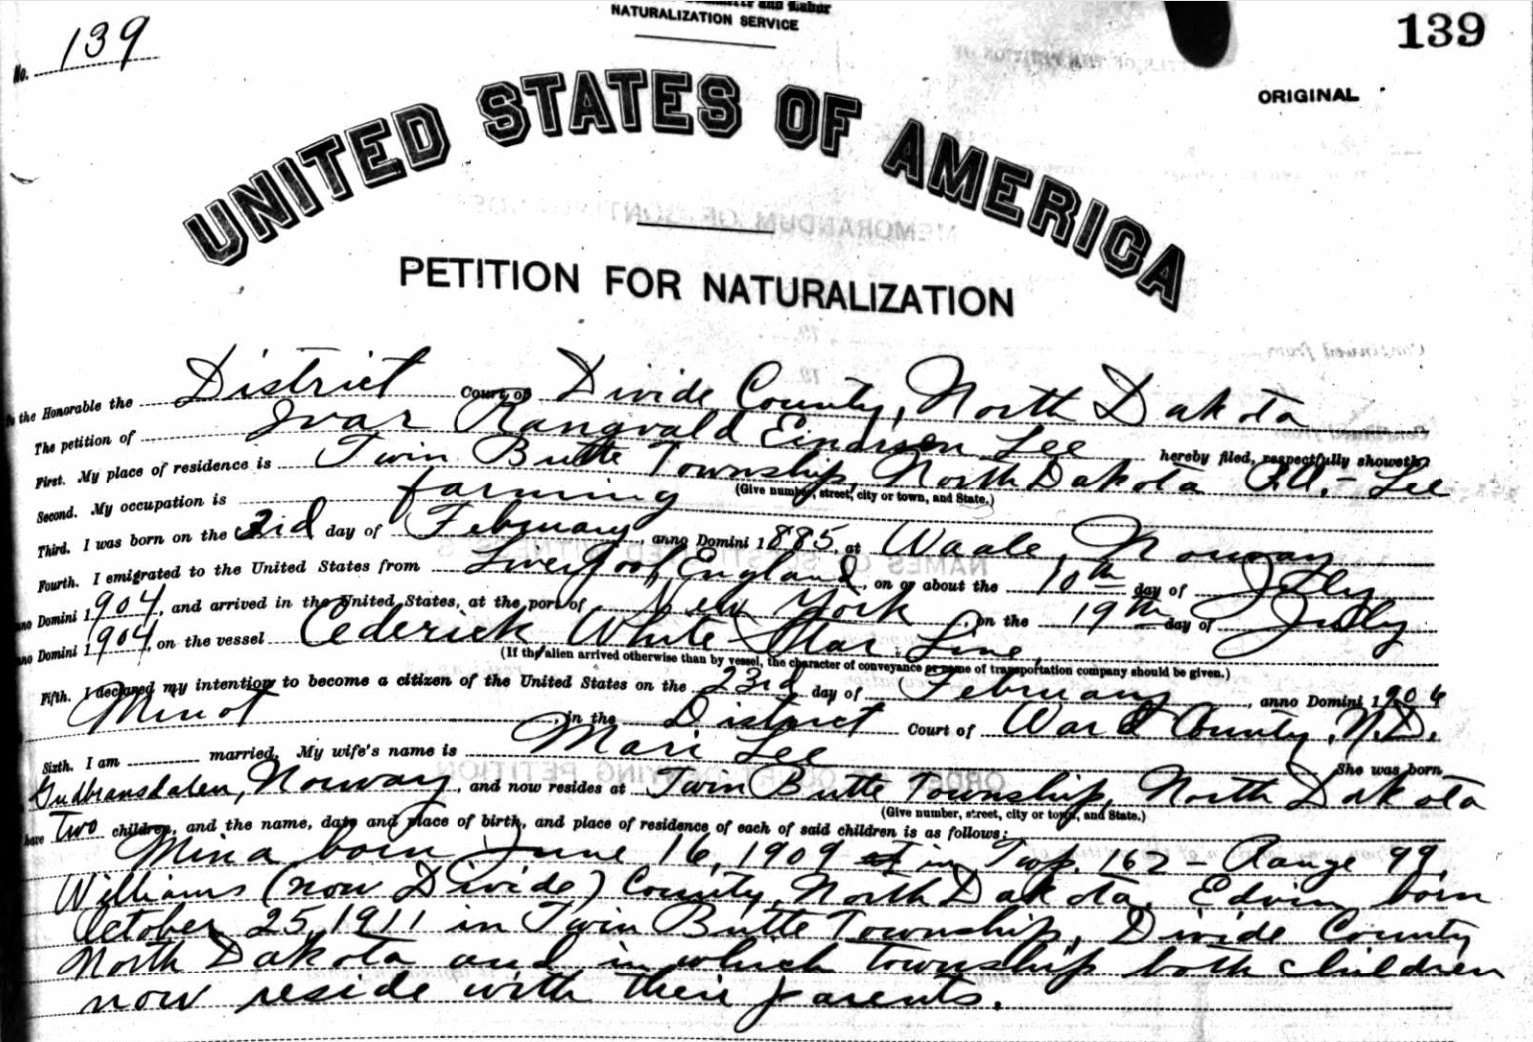 and Labor
NATURALIZATION SERVICE
No. 139
139
ORIGINAL
UNITED STATES OF AMERICA
PETITION FOR NATURALIZATION
To the Honorable the District Court of Divide County, North Dakota
The petition of Ivar Rangvald Einarsen Lee hereby filed, respectfully showeth:
First. My place of residence is Twin Butte Township, North Dakota P.O. - Lee
(Give number, street, city or town, and State.)
Second. My occupation is farming
Third. I was born on the 3rd day of February, anno Domini 1885, at Waale, Norway
Fourth. I emigrated to the United States from Liverpool, England, on or about the 10th day of July
anno Domini 1904, and arrived in the United States, at the port of New York, on the 19th day of July
anno Domini 1904, on the vessel Cederick White Star Line
(If the alien arrived otherwise than by vessel, the character of conveyance or name of transportation company should be given.)
Fifth. I declared my intention to become a citizen of the United States on the 23rd day of February, anno Domini 1906
Minot, in the District Court of Ward County, N.D.
Sixth. I am married. My wife's name is Mari Lee She was born
Gudbransdalen, Norway, and now resides at Twin Butte Township, North Dakota
(Give number, street, city or town, and State.)
have Two children, and the name, date and place of birth, and place of residence of each of said children is as follows:
Mina born June 16, 1909 in Twp. 162 - Range 99,
Williams (now Divide) County, North Dakota. Edvin born
October 25, 1911 in Twin Butte Township, Divide County
North Dakota and in which township both children
now reside with their parents.